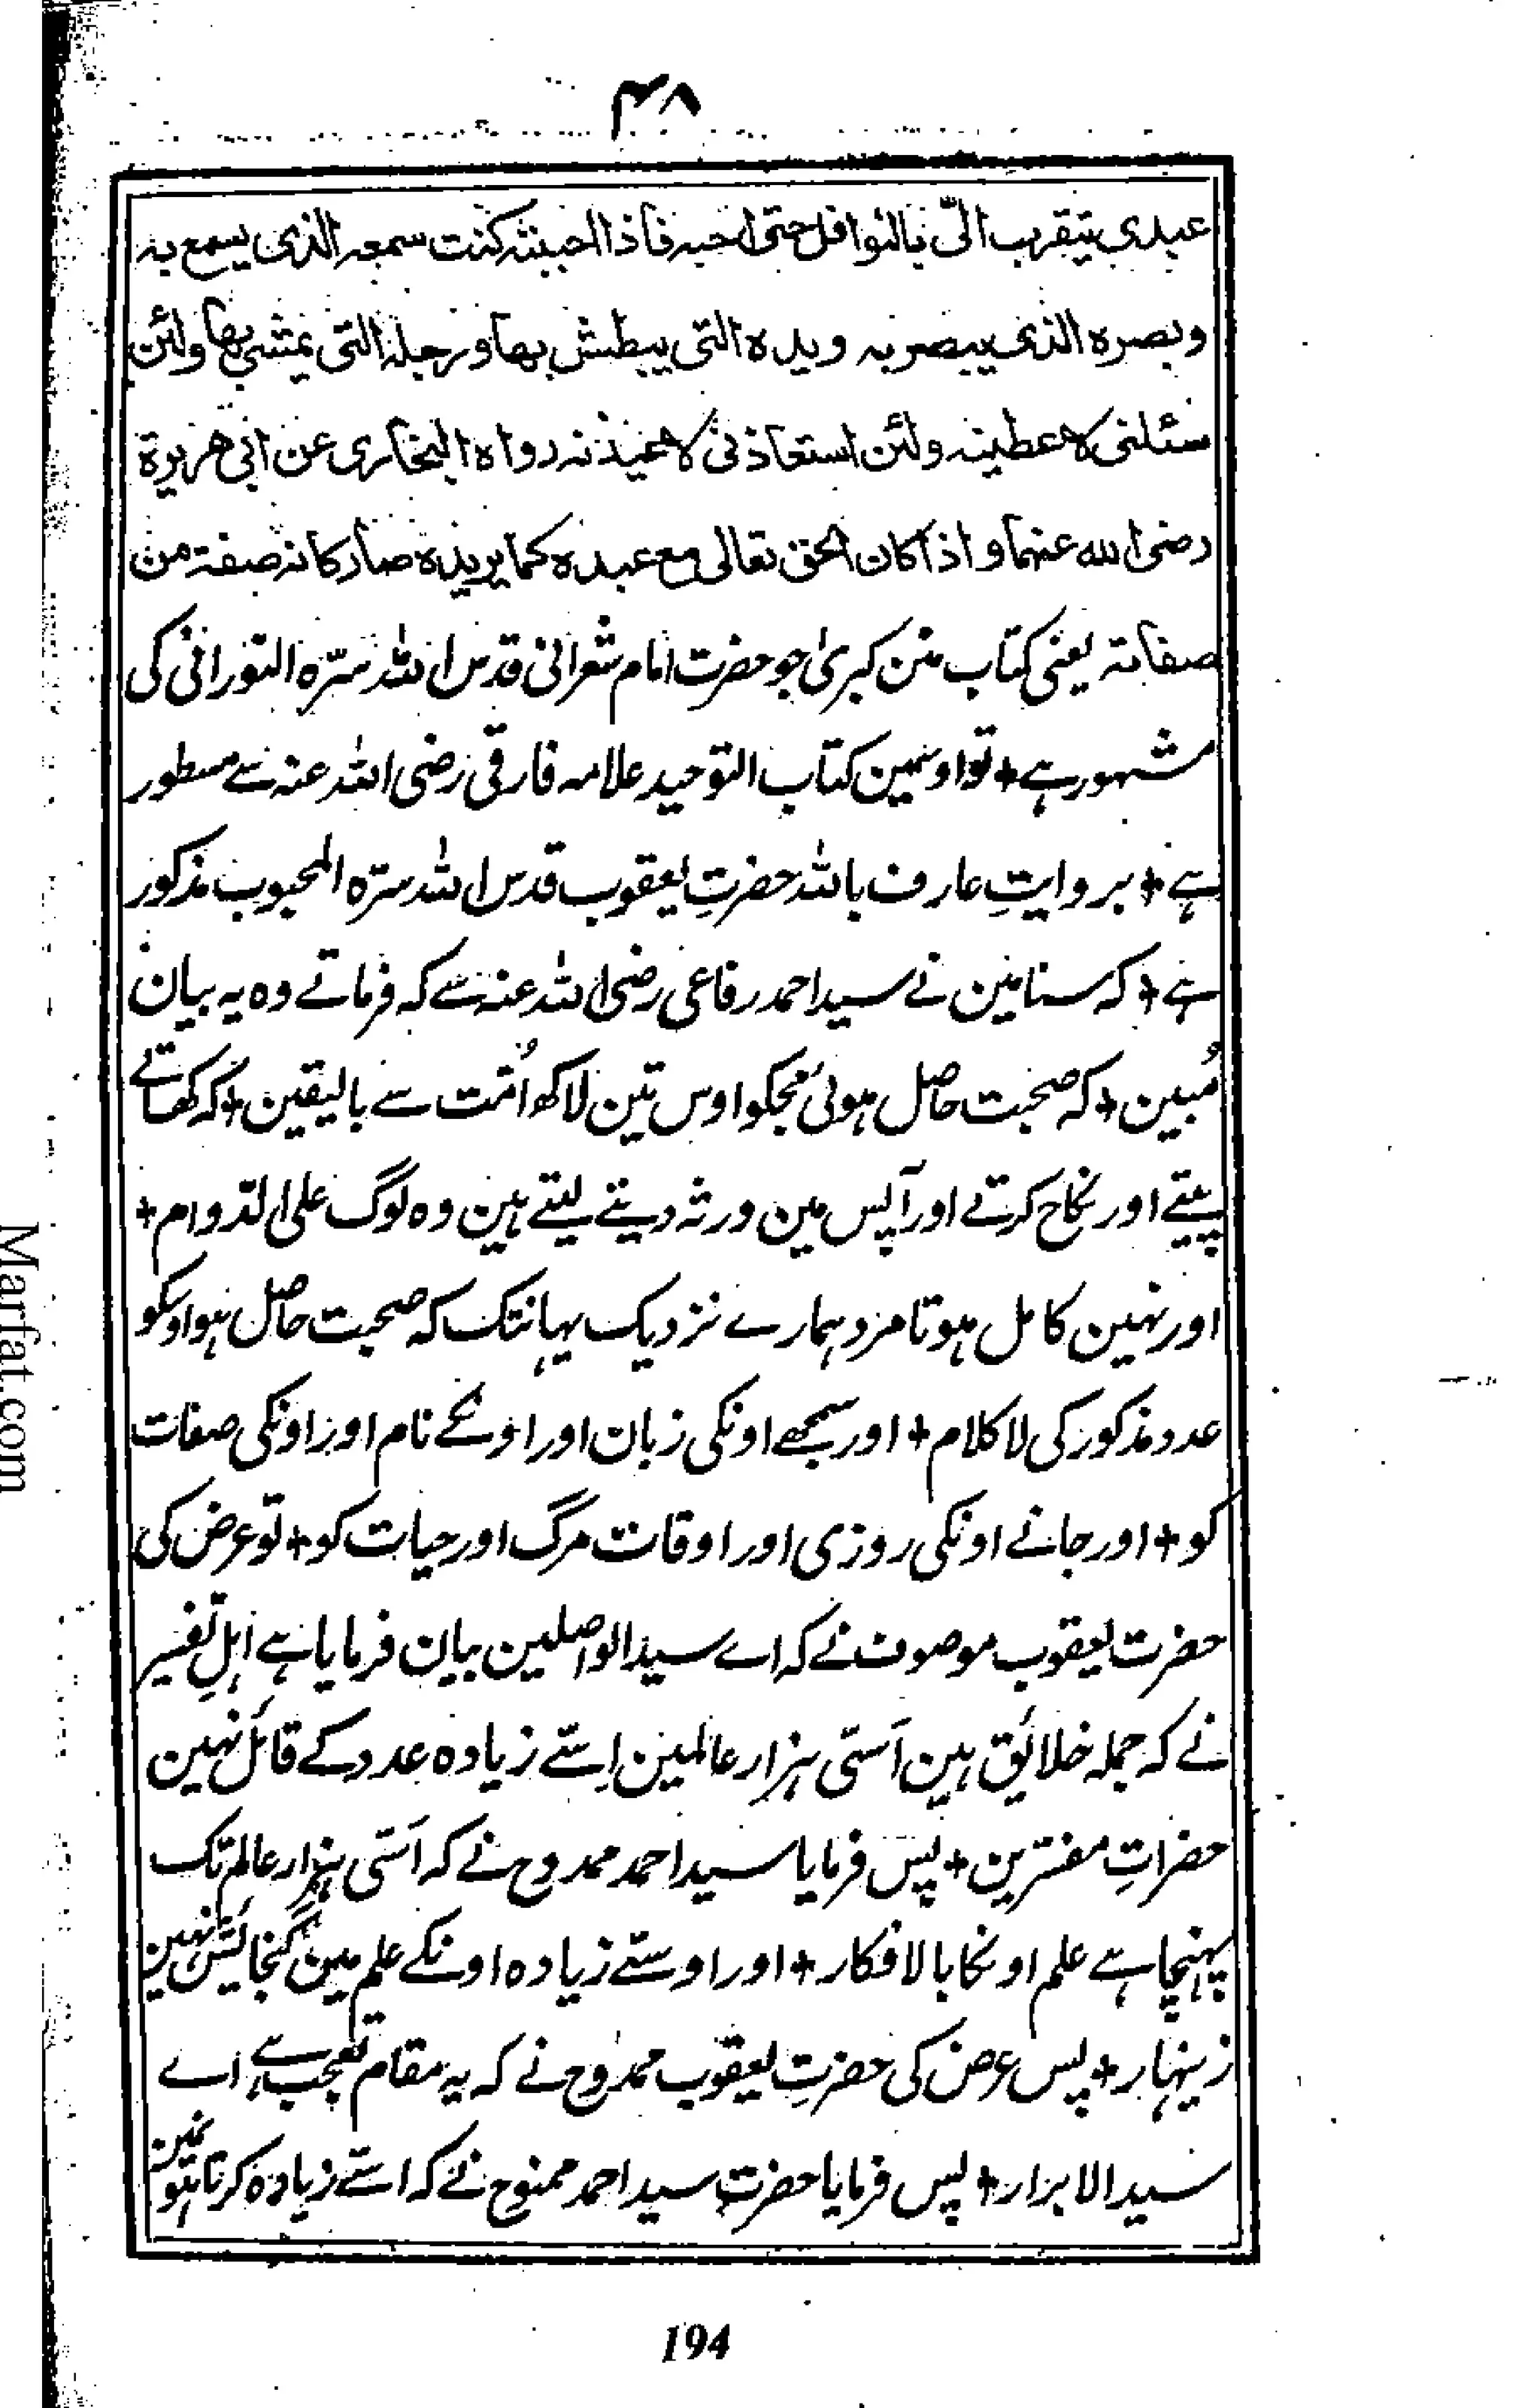 ۴۸
عبدی یتقرب الیّ بالنوافل حتی احبہ فاذا احببتہ کنت سمعہ الذی یسمع بہ
وبصرہ الذی یبصر بہ ویدہ التی یبطش بھا ورجلہ التی یمشی بھا ولئن
سئلنی لاعطینہ ولئن استعاذنی لاعیذنہ رواہ البخاری عن ابی ھریرۃ
رضی اللہ عنہما و اذا کان الحق تعالی مع عبدہ کما یریدہ صار کانہ صفۃ من
صفاتہ یعنی کتاب منن کبریٰ جو حضرت امام شعرانی قدس اللہ سرّہ النورانی کی
مشہور ہے + تو اوسمین کتاب التوحید علامہ فارقی رضی اللہ عنہ سے مسطور
ہے + بروایتِ عارف باللہ حضرتِ یعقوب قدس اللہ سرّہ المحبوب مذکور
ہے + کہ سنا مین نے سید احمد رفاعی رضی اللہ عنہ سے کہ فرماتے وہ یہ بیان
مُبین + کہ صحبت حاصل ہوئی مجکو اوس تین لاکھ اُمّت سے بالیقین + کہ کھاتے
پیتے اور نکاح کرتے اور آپس مین ورثہ دیتے لیتے ہین وہ لوگ علی الدّوام +
اور نہین کامل ہوتا مرد ہمارے نزدیک یہانتک کہ صحبت حاصل ہو اوسکو
عدد مذکور کی لاکلام + اور سمجھے اونکی زبان اور اونکے نام اور اونکی صفات
کو + اور جانے اونکی روزی اور اوقات مرگ اور حیات کو + تو عرض کی
حضرت یعقوب موصوف نے کہ اے سید الواصلین بیان فرمایا ہے اہلِ تفسیر
نے کہ جملہ خلائق ہین اَسّی ہزار عالمین اِسّے زیادہ عدد کے قائل نہین
حضراتِ مفسّرین + پس فرمایا سید احمد ممدوح نے کہ اَسّی ہزار عالم تک
پہنچا ہے علم اونکا بالافکار + اور اوسّے زیادہ اونکے علم مین گنجایش نہین
زینہار + پس عرض کی حضرتِ یعقوب ممدوح نے کہ یہ مقام تعجب ہے اے
سید الابرار + پس فرمایا حضرتِ سید احمد ممنوح نے کہ اسّے زیادہ کرتا ہون مین
194
Marfat.com